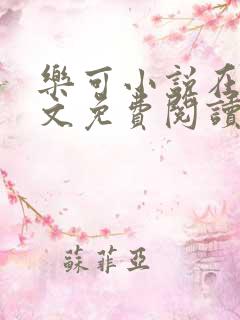 樂可小說在
文免費閱讀
蘇菲亞